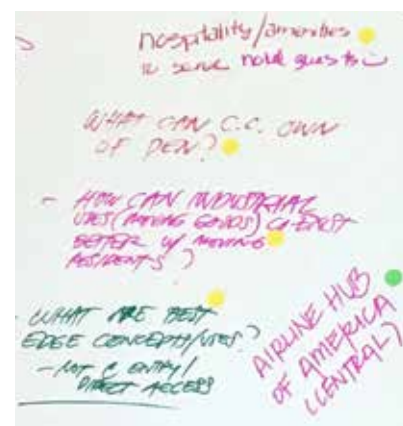 hospitality/amenities
to serve hotel guests
WHAT CAN C.C. OWN
OF DEN?
- HOW CAN INDUSTRIAL
USES (MOVING GOODS) CO-EXIST
BETTER W/ MOVING
RESIDENTS?
- WHAT ARE BEST
EDGE CONCEPTS/USES?
- NOT @ ENTRY/
DIRECT ACCESS
AIRLINE HUB
OF AMERICA
(CENTRAL)